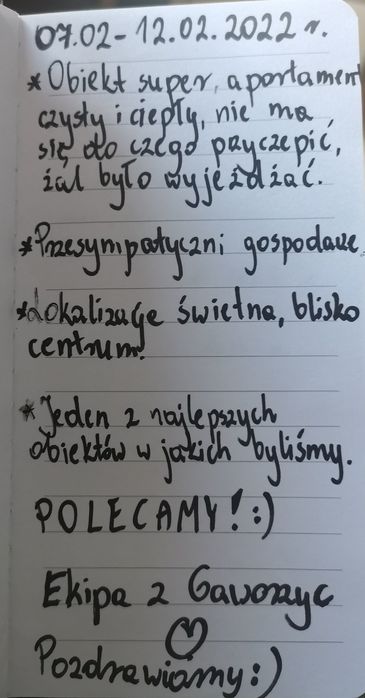 07.02-12.02.2022 r.
* Obiekt super, apartament
czysty i ciepły, nie ma
się do czego przyczepić,
żal było wyjeżdżać.
* Przesympatyczni gospodarze
* Lokalizacje świetna, blisko
centrum!
* Jeden z najlepszych
obiektów w jakich byliśmy.
POLECAMY! :)
Ekipa z Gaworzyc
Pozdrawiamy :)